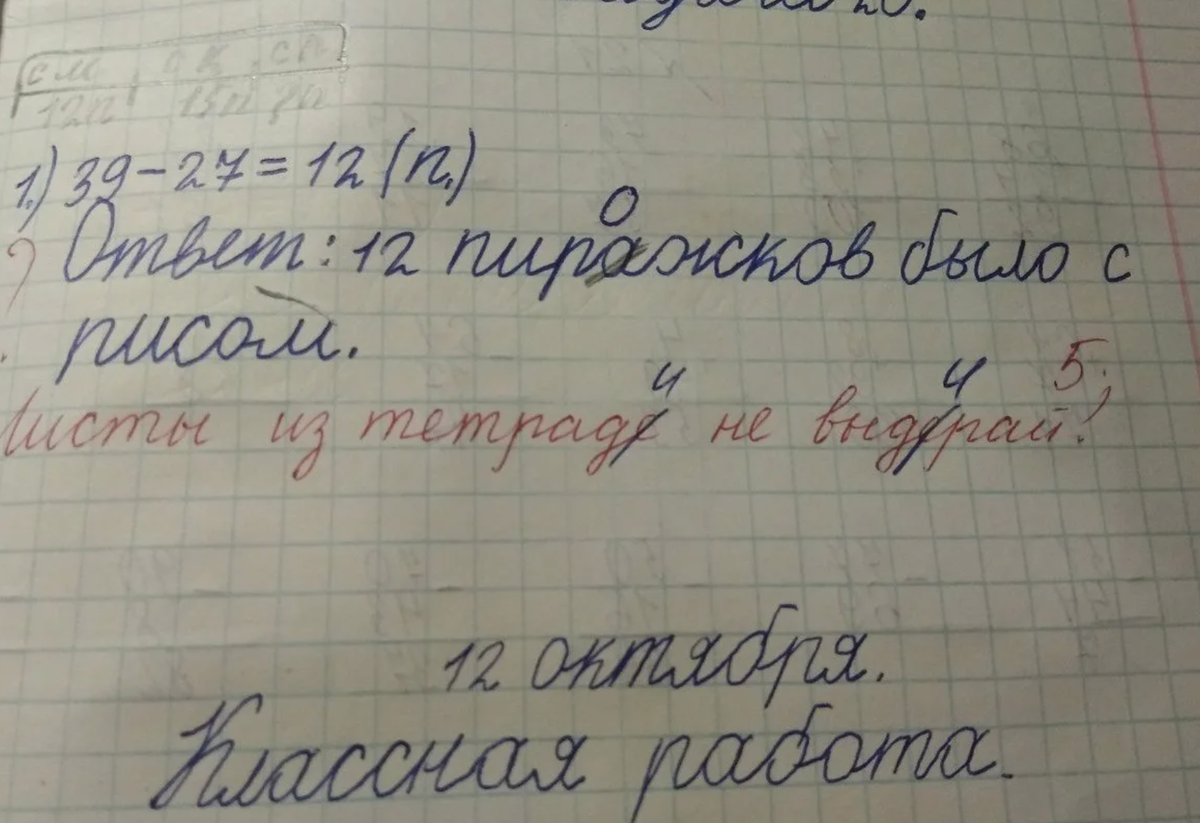 см ск сп
12п 15п
1.) 39-27=12 (п.)
о
Ответ: 12 пиражков было с
рисом.
и и 5;
Листы из тетраде не выдерай!
12 октября.
Классная работа.